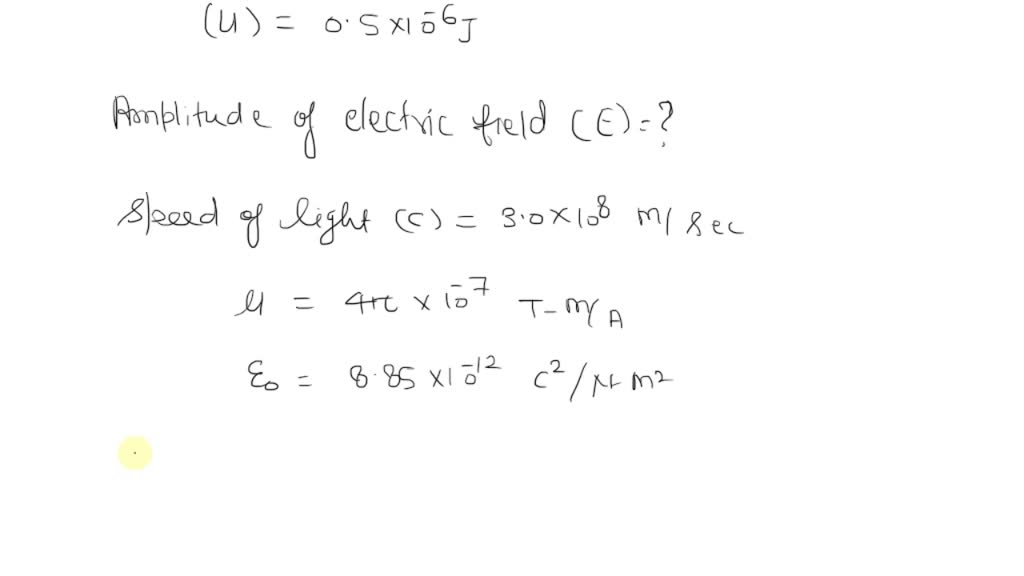 (U) = 0.5 × 10⁻⁶ J
Amplitude of electric field (E) = ?
Speed of light (c) = 3.0 × 10⁸ m/sec
μ = 4π × 10⁻⁷ T-m/A
ε₀ = 8.85 × 10⁻¹² C²/N m²